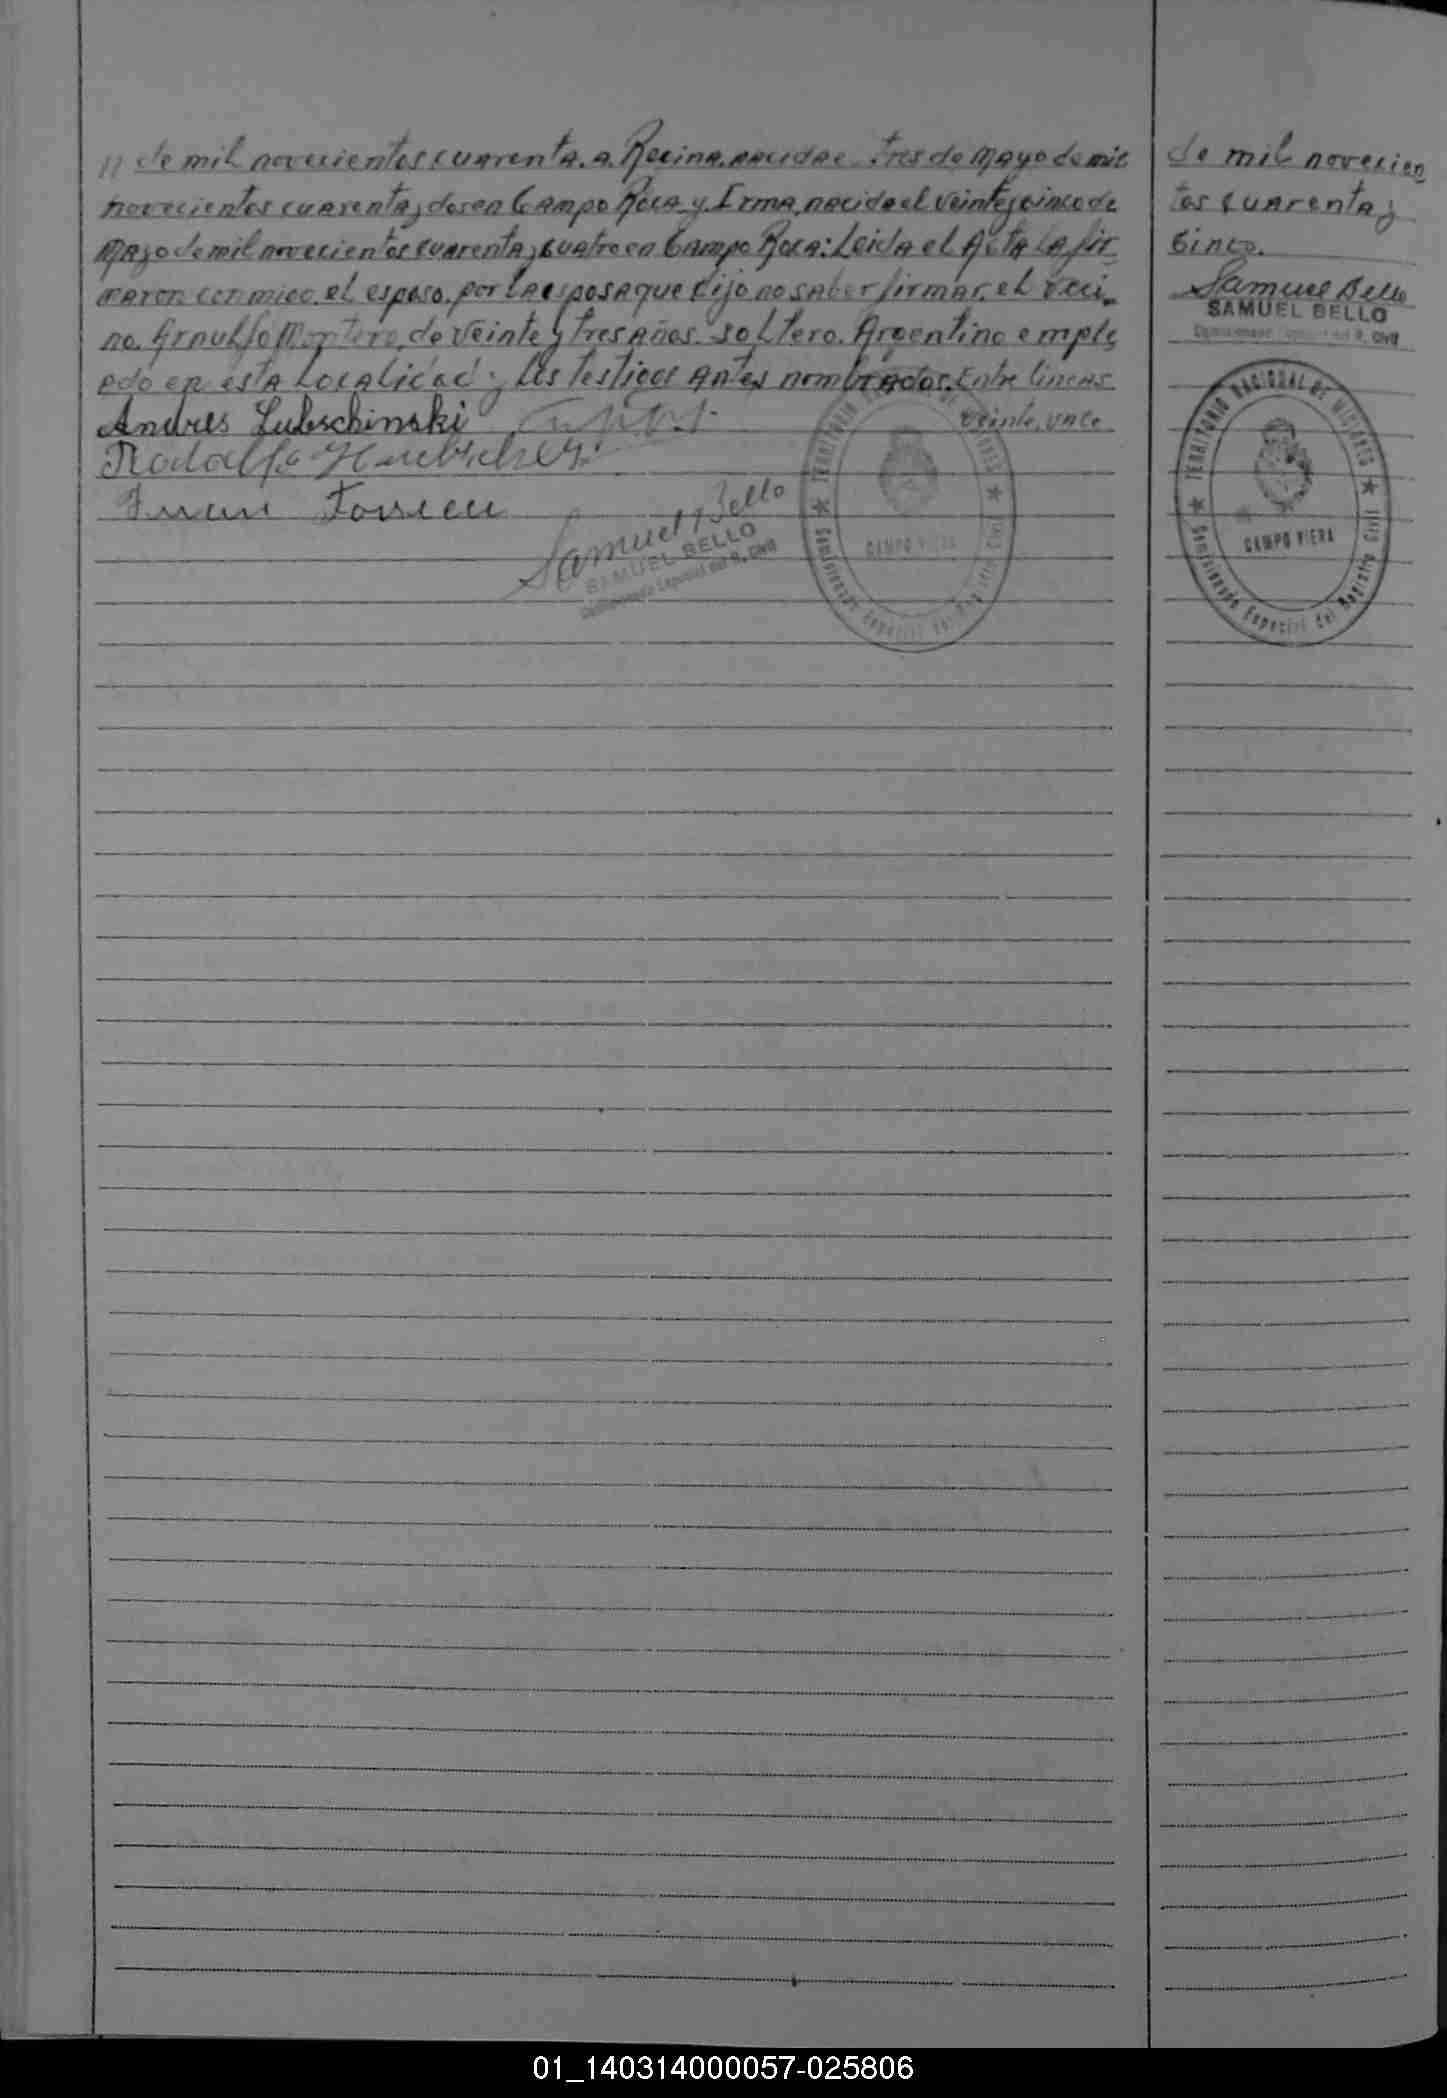 // de mil novecientos cuarenta. a Regina. nacida e. tres de Mayo de mil
novecientos cuarenta y dos en Campo Roca y Irma, nacida el veinte y cinco de
Mayo de mil novecientos cuarenta y cuatro en Campo Roca: Leida el Acta la fir_
maron conmigo. el esposo. por la esposa que dijo no saber firmar. el veci_
no. Arnulfo Montero, de veinte y tres años. soltero. Argentino emple
ado en esta Localidad y los testigos antes nombrados. Entre lineas
veinte, vale
Andres Lubschinski
Rodolfo
Juan
Samuel Bello
SAMUEL BELLO
Comisionado Especial del R. Civil
TERRITORIO NACIONAL DE MISIONES
CAMPO VIERA
Comisionado Especial del Registro Civil
de mil novecien
tos cuarenta y
Cinco.
Samuel Bello
SAMUEL BELLO
Comisionado Especial del R. Civil
TERRITORIO NACIONAL DE MISIONES
CAMPO VIERA
Comisionado Especial del Registro Civil
01_140314000057-025806